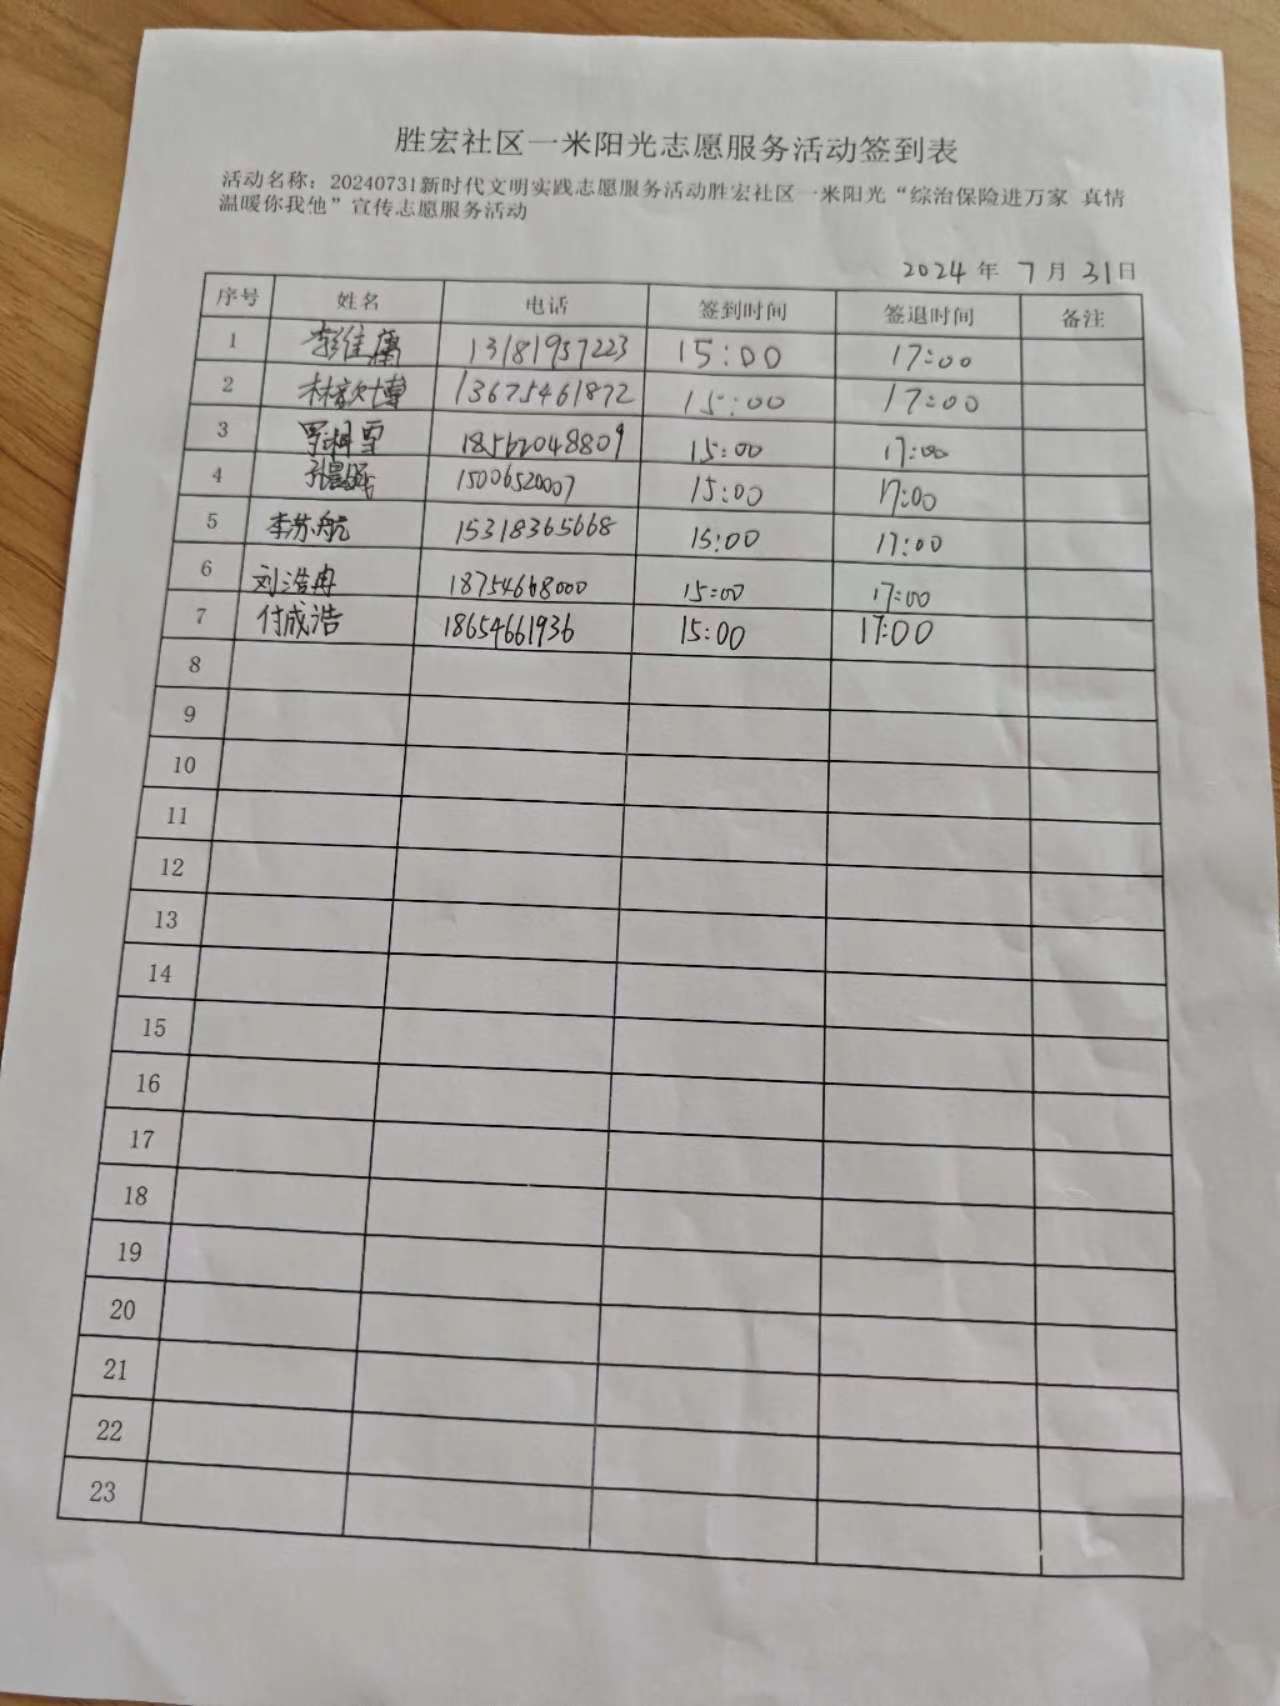 胜宏社区一米阳光志愿服务活动签到表
活动名称：20240731新时代文明实践志愿服务活动胜宏社区一米阳光“综治保险进万家 真情
温暖你我他”宣传志愿服务活动
2024 年 7 月 31日
序号 姓名 电话 签到时间 签退时间 备注
1 13181957223 15:00 17:00
2 13675461872 15:00 17:00
3 18562048809 15:00 17:00
4 15006520007 15:00 17:00
5 李苏航 15318365668 15:00 17:00
6 刘浩冉 18754668000 15:00 17:00
7 付成浩 18654661936 15:00 17:00
8
9
10
11
12
13
14
15
16
17
18
19
20
21
22
23